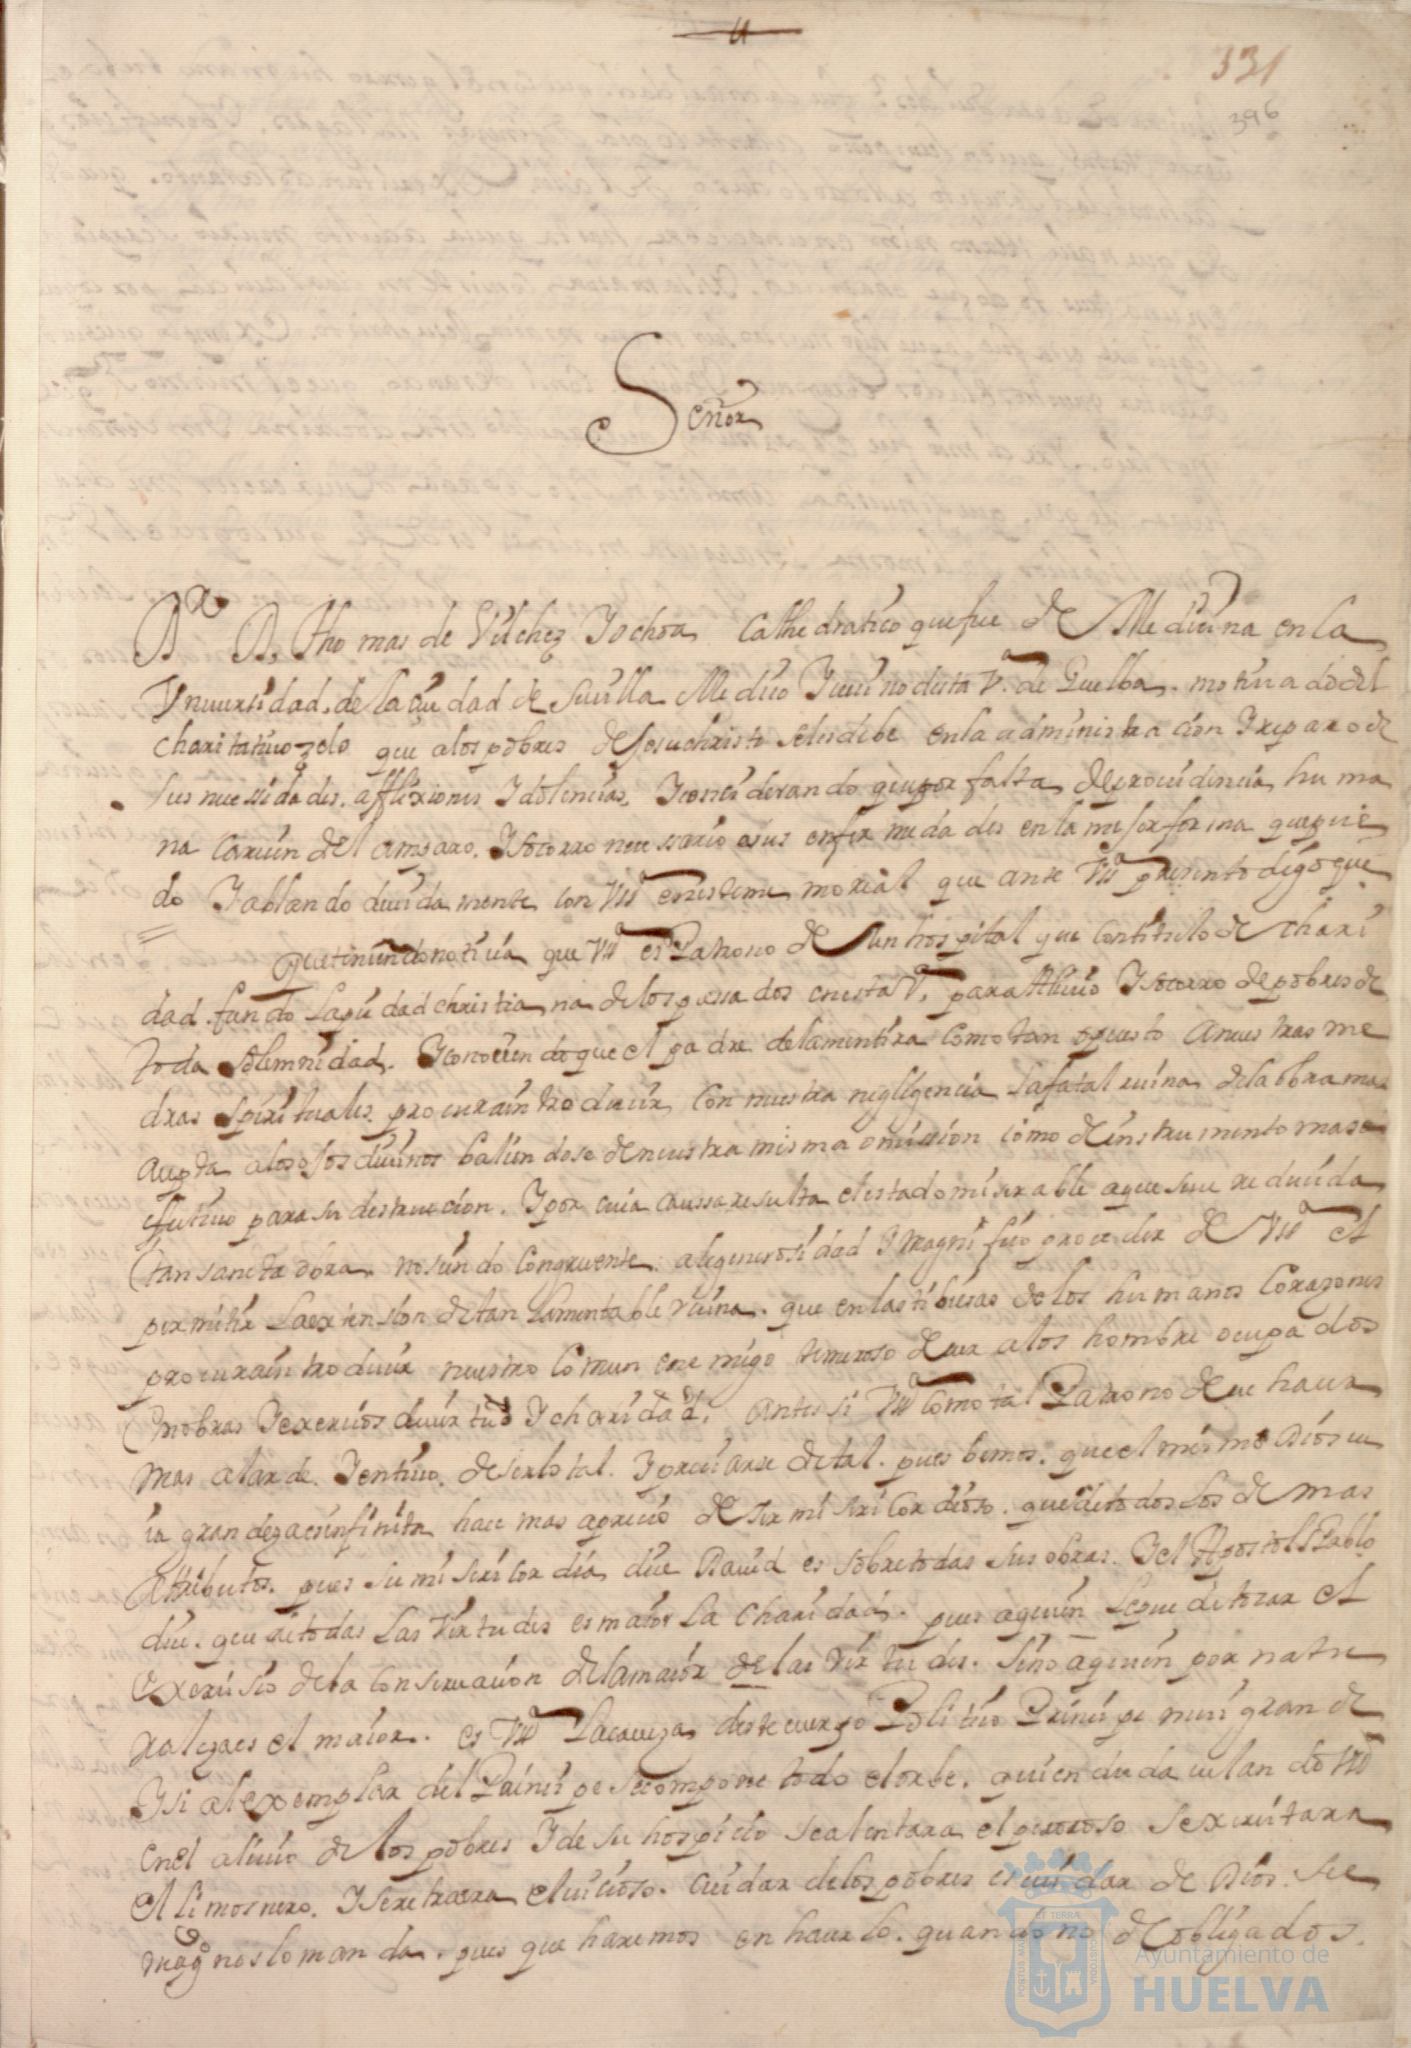 331
396
Señor
Br Dn Thomas de Vilchez Y ochoa Cathedratico que fue de Medicina en la
Vniuersidad de la ciudad de Seuilla Medico Y vecino desta Va de Guelba. motiuado del
charitatiuo zelo que a los pobres de Jesuchristo se les debe en la administracion Y reparo de
sus necesidades. afflixiones Y dolencias, Y considerando que por falta de prouidencia huma
na carecen del amparo. Y socorro necessario a sus enfermedades en la mejor forma que pue
do Y ablando deuidamente con VSa en este memorial que ante VSa presento digo que
Que teniendo noticia que VSa es Patrono de un hospital que con titulo de chari
dad. fundo la piedad christiana de los passados en esta Va para Aliuio Y socorro de pobres de
toda solemnidad. Y conociendo que el padre de la mentira como tan opuesto a nuestras me
dras espirituales. procura introducir con nuestra negligencia la fatal ruina de la obra mas
acepta a los ojos diuinos baliendose de nuestra misma omission como de instrumento mas e
fectiuo para su destruccion. Y por cuia caussa resulta el estado miserable a que se ve reducida
tan sancta obra. no siendo congruente a la generosidad Y magnifico proceder de VSa el
permitir la extension de tan lamentable ruina. que en las tibiesas de los humanos corazones
procura introducir nuestro comun enemigo temeroso de ver a los hombre ocupados
en obras Y exercicios de virtud Y charidad. Antes si VSa como tal Patrono deue hacer
mas alarde. de serlo tal. Y preciarse de tal. pues bemos. que el mismo Dios cu
ia grandeza es infinita hace mas aprecio de ser misericordioso. que de todos los de mas
attributos. pues su misericordia dice Dauid es sobre todas sus obras. Y el Apostol S Pablo
dice. que de todas las virtudes es maior la charidad. pues a quien le puede tocar el
exercisio de la conseruacion de la maior de las virtudes. sino a quien por natu
raleza es el maior. es VSa la caueza deste cuerpo Politico Principe mui grande
Y si al exemplar del Principe se compone todo el orbe. quien duda celando VSa
en el aliuio de los pobres Y de su hospicio se alentara el peresoso se exercitara
el limosnero. Y se retraera el vicioso. cuidar de los pobres es cuidar de Dios. Su
Magd nos lo manda. pues que haremos en hacerlo. quando no de obligados.
PORTUS MARIS ET TERRAE CUSTODIA
Ayuntamiento de
HUELVA